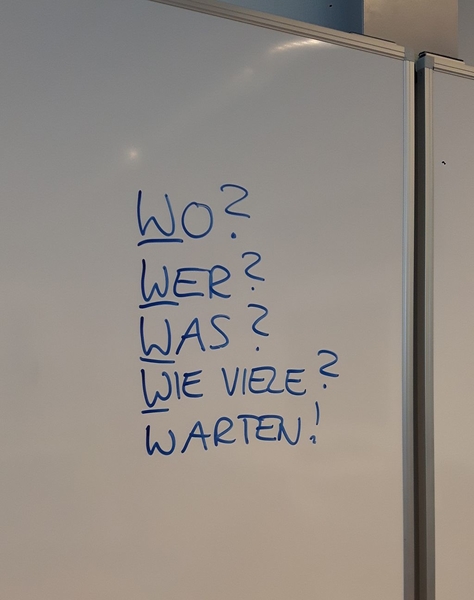 WO?
WER?
WAS?
WIE VIELE?
WARTEN!